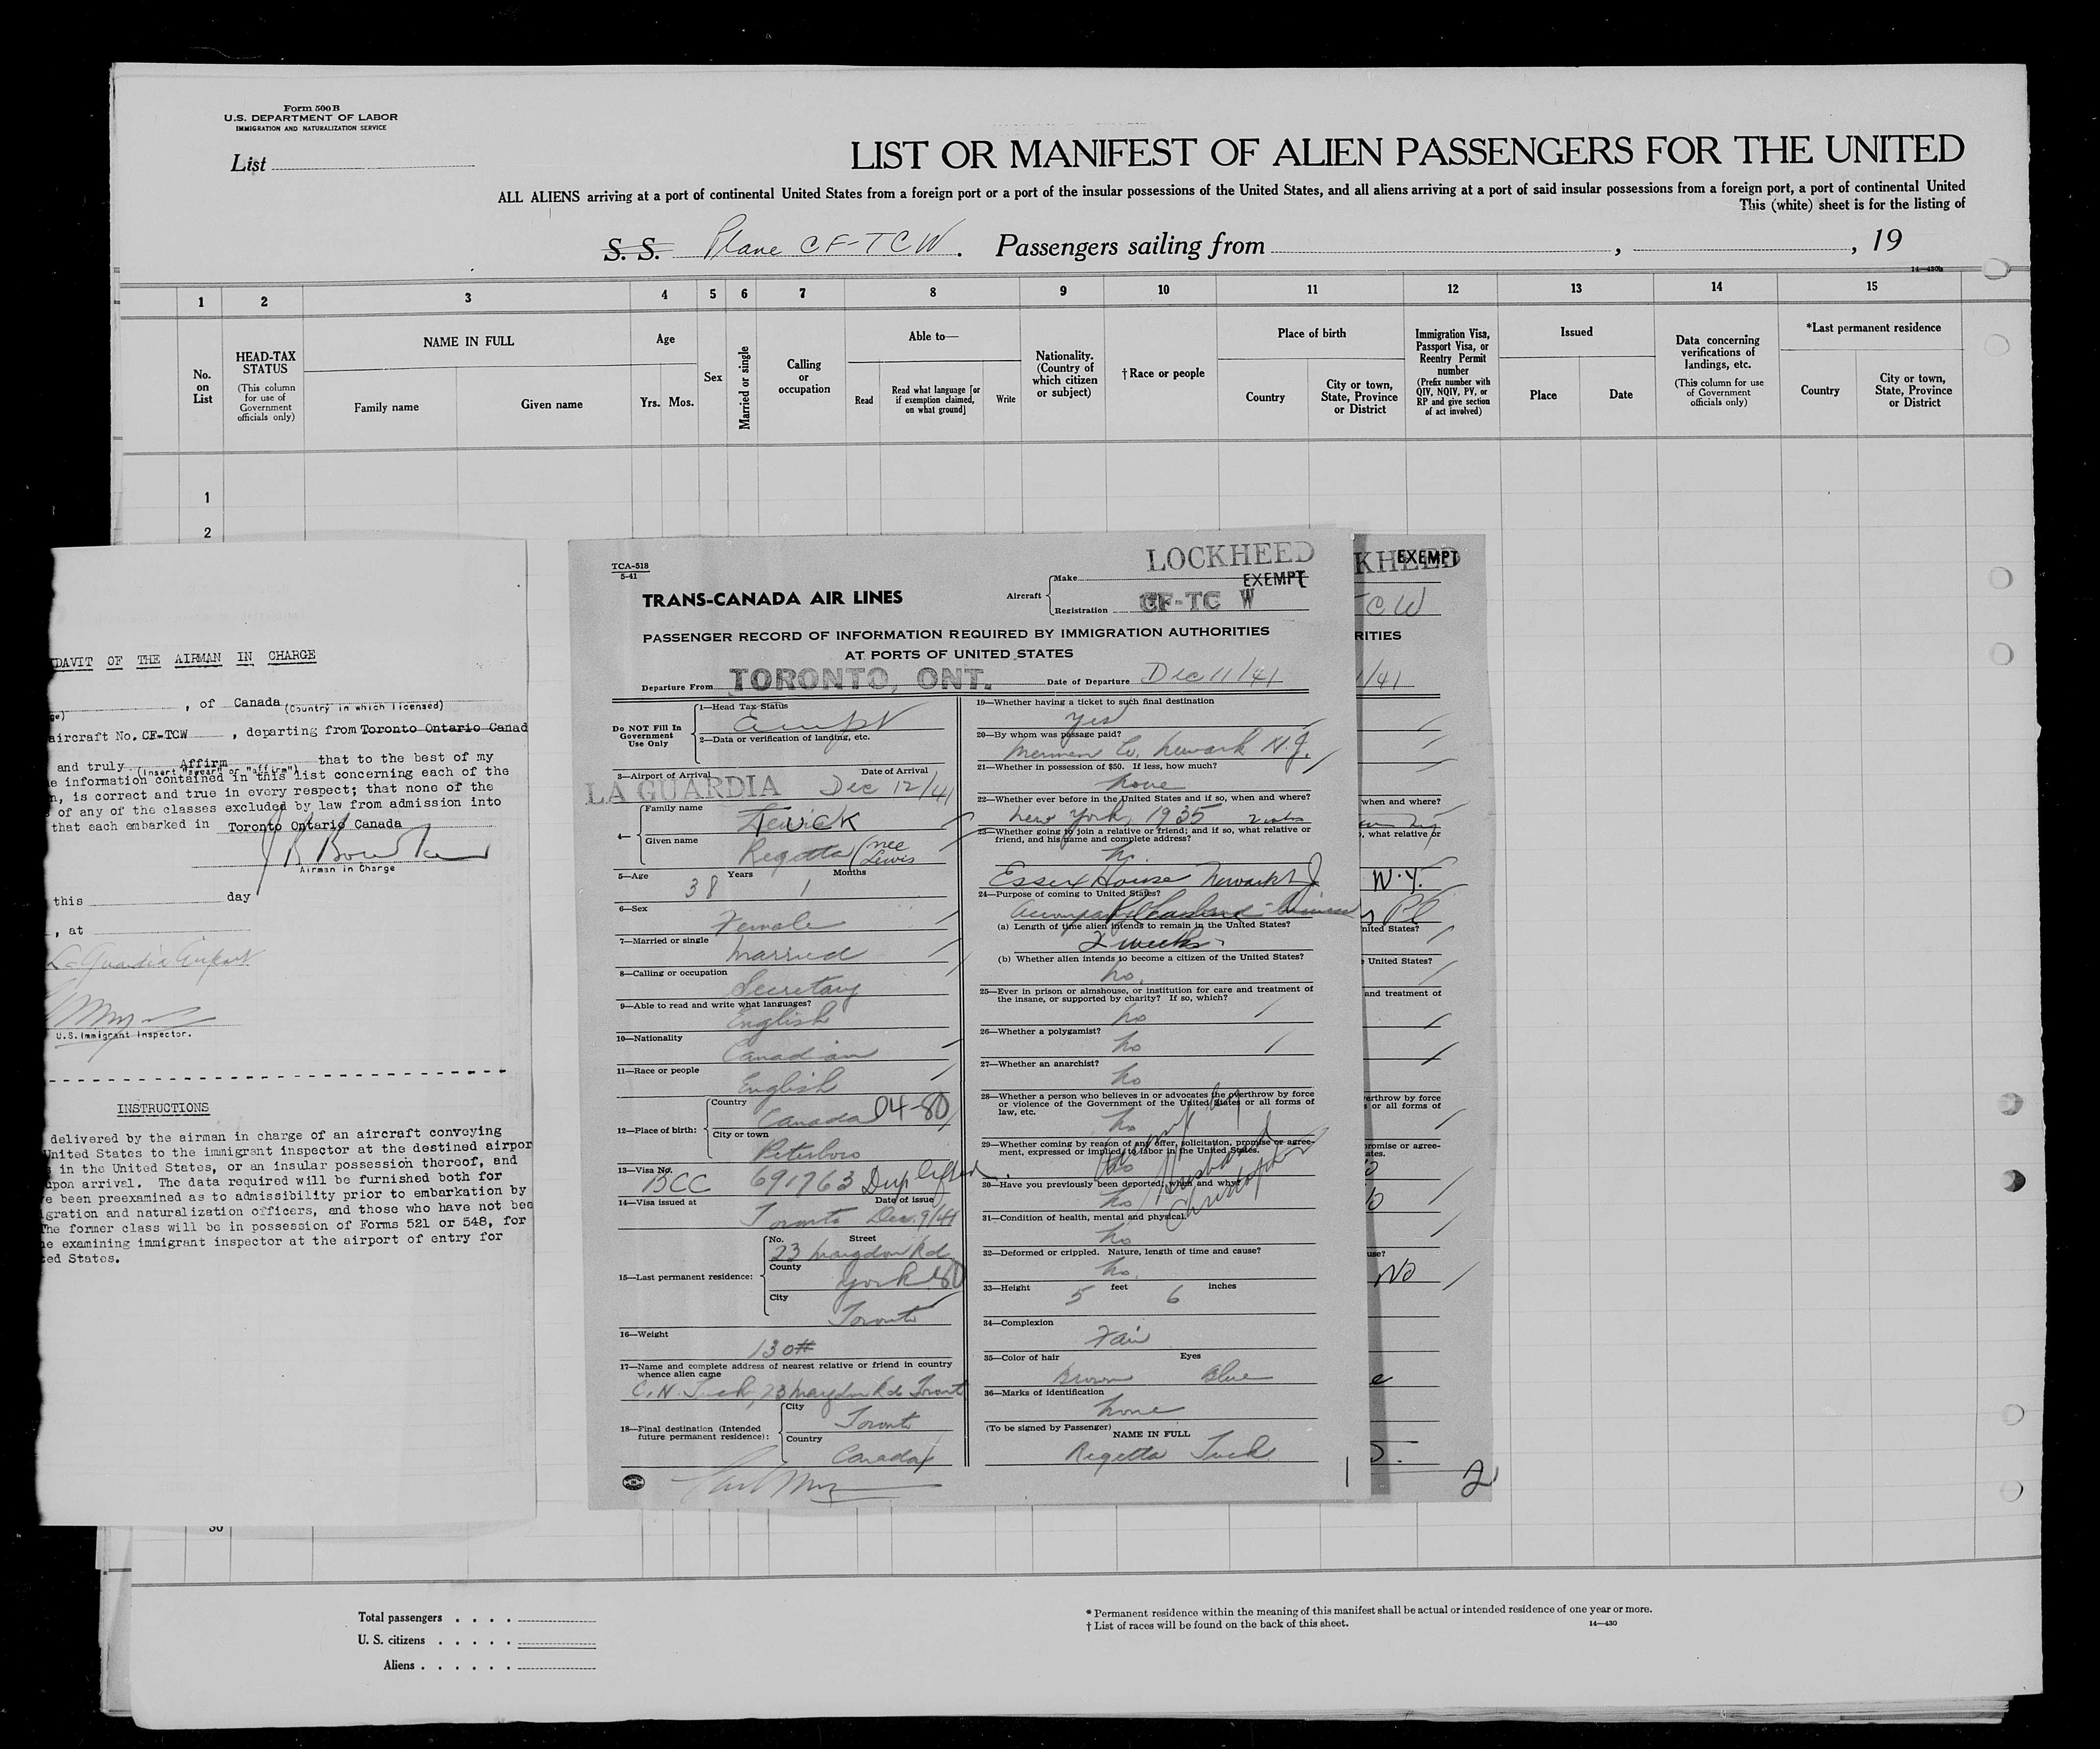 Form 500 B
U.S. DEPARTMENT OF LABOR
IMMIGRATION AND NATURALIZATION SERVICE
List
LIST OR MANIFEST OF ALIEN PASSENGERS FOR THE UNITED
ALL ALIENS arriving at a port of continental United States from a foreign port or a port of the insular possessions of the United States, and all aliens arriving at a port of said insular possessions from a foreign port, a port of continental United
This (white) sheet is for the listing of
S. S. Plane CF-TCW. Passengers sailing from , , 19
14—430b
1 2 3 4 5 6 7 8 9 10 11 12 13 14 15
No. on List
HEAD-TAX STATUS
(This column for use of Government officials only)
NAME IN FULL
Family name Given name
Age
Yrs. Mos.
Sex
Married or single
Calling or occupation
Able to—
Read
Read what language [or if exemption claimed, on what ground]
Write
Nationality. (Country of which citizen or subject)
†Race or people
Place of birth
Country
City or town, State, Province or District
Immigration Visa, Passport Visa, or Reentry Permit number
(Prefix number with QIV, NQIV, PV, or RP and give section of act involved)
Issued
Place Date
Data concerning verifications of landings, etc.
(This column for use of Government officials only)
*Last permanent residence
Country
City or town, State, Province or District
1
2
DAVIT OF THE AIRMAN IN CHARGE
, of Canada
ge) (Country in which licensed)
aircraft No. CF-TCW , departing from Toronto Ontario Canad
and truly Affirm that to the best of my
(Insert "swear" or "affirm")
e information contained in this list concerning each of the
n, is correct and true in every respect; that none of the
s of any of the classes excluded by law from admission into
that each embarked in Toronto Ontario Canada
Airman in Charge
this day
, at
La Guardia Airport
U.S. Immigrant Inspector.
INSTRUCTIONS
delivered by the airman in charge of an aircraft conveying
United States to the immigrant inspector at the destined airpor
s in the United States, or an insular possession thereof, and
upon arrival. The data required will be furnished both for
e been preexamined as to admissibility prior to embarkation by
gration and naturalization officers, and those who have not bee
The former class will be in possession of Forms 521 or 548, for
e examining immigrant inspector at the airport of entry for
ted States.
30
TCA-518
5-41
TRANS-CANADA AIR LINES
Aircraft
Make LOCKHEED
EXEMPT
Registration CF-TC W
PASSENGER RECORD OF INFORMATION REQUIRED BY IMMIGRATION AUTHORITIES
AT PORTS OF UNITED STATES
Departure From TORONTO, ONT. Date of Departure Dec 11/41
Do NOT Fill In Government Use Only
1—Head Tax Status
2—Data or verification of landing, etc.
3—Airport of Arrival Date of Arrival
LA GUARDIA Dec 12/41
4—
Family name
TUCK
Given name
Regetta (nee Lewis
5—Age Years Months
38 1
6—Sex
Female
7—Married or single
Married
8—Calling or occupation
Secretary
9—Able to read and write what languages?
English
10—Nationality
Canadian
11—Race or people
English
12—Place of birth:
Country
Canada 04-80
City or town
Peterboro
13—Visa No.
BCC 691763 Dup lifted
14—Visa issued at Date of issue
Toronto Dec. 9/41
15—Last permanent residence:
No. Street
23
County
York 80
City
Toronto
16—Weight
130#
17—Name and complete address of nearest relative or friend in country
whence alien came
C. N. Tuck, 23
18—Final destination (Intended
future permanent residence):
City
Toronto
Country
Canada
19—Whether having a ticket to such final destination
Yes
20—By whom was passage paid?
Mennen Co. Newark N.J.
21—Whether in possession of $50. If less, how much?
none
22—Whether ever before in the United States and if so, when and where?
New York, 1935
23—Whether going to join a relative or friend; and if so, what relative or
friend, and his name and complete address?
no
Essex House Newark N J
24—Purpose of coming to United States?
(a) Length of time alien intends to remain in the United States?
2 weeks
(b) Whether alien intends to become a citizen of the United States?
no.
25—Ever in prison or almshouse, or institution for care and treatment of
the insane, or supported by charity? If so, which?
no
26—Whether a polygamist?
no
27—Whether an anarchist?
no
28—Whether a person who believes in or advocates the overthrow by force
or violence of the Government of the United States or all forms of
law, etc.
no
29—Whether coming by reason of any offer, solicitation, promise or agree-
ment, expressed or implied, to labor in the United States.
no
Husband
Christopher
30—Have you previously been deported, when and why?
no
31—Condition of health, mental and physical.
no
32—Deformed or crippled. Nature, length of time and cause?
no.
33—Height 5 feet 6 inches
34—Complexion
Fair
35—Color of hair Eyes
Brown Blue
36—Marks of identification
none
(To be signed by Passenger)
NAME IN FULL
Regetta Tuck
1
KHEED
EXEMPT
CW
RITIES
1/41
when and where?
, what relative or
N.Y.
Pl
nited States?
e United States?
and treatment of
erthrow by force
s or all forms of
promise or agree-
ates.
use?
No
2
Total passengers
U. S. citizens
Aliens
* Permanent residence within the meaning of this manifest shall be actual or intended residence of one year or more.
† List of races will be found on the back of this sheet.
14—430